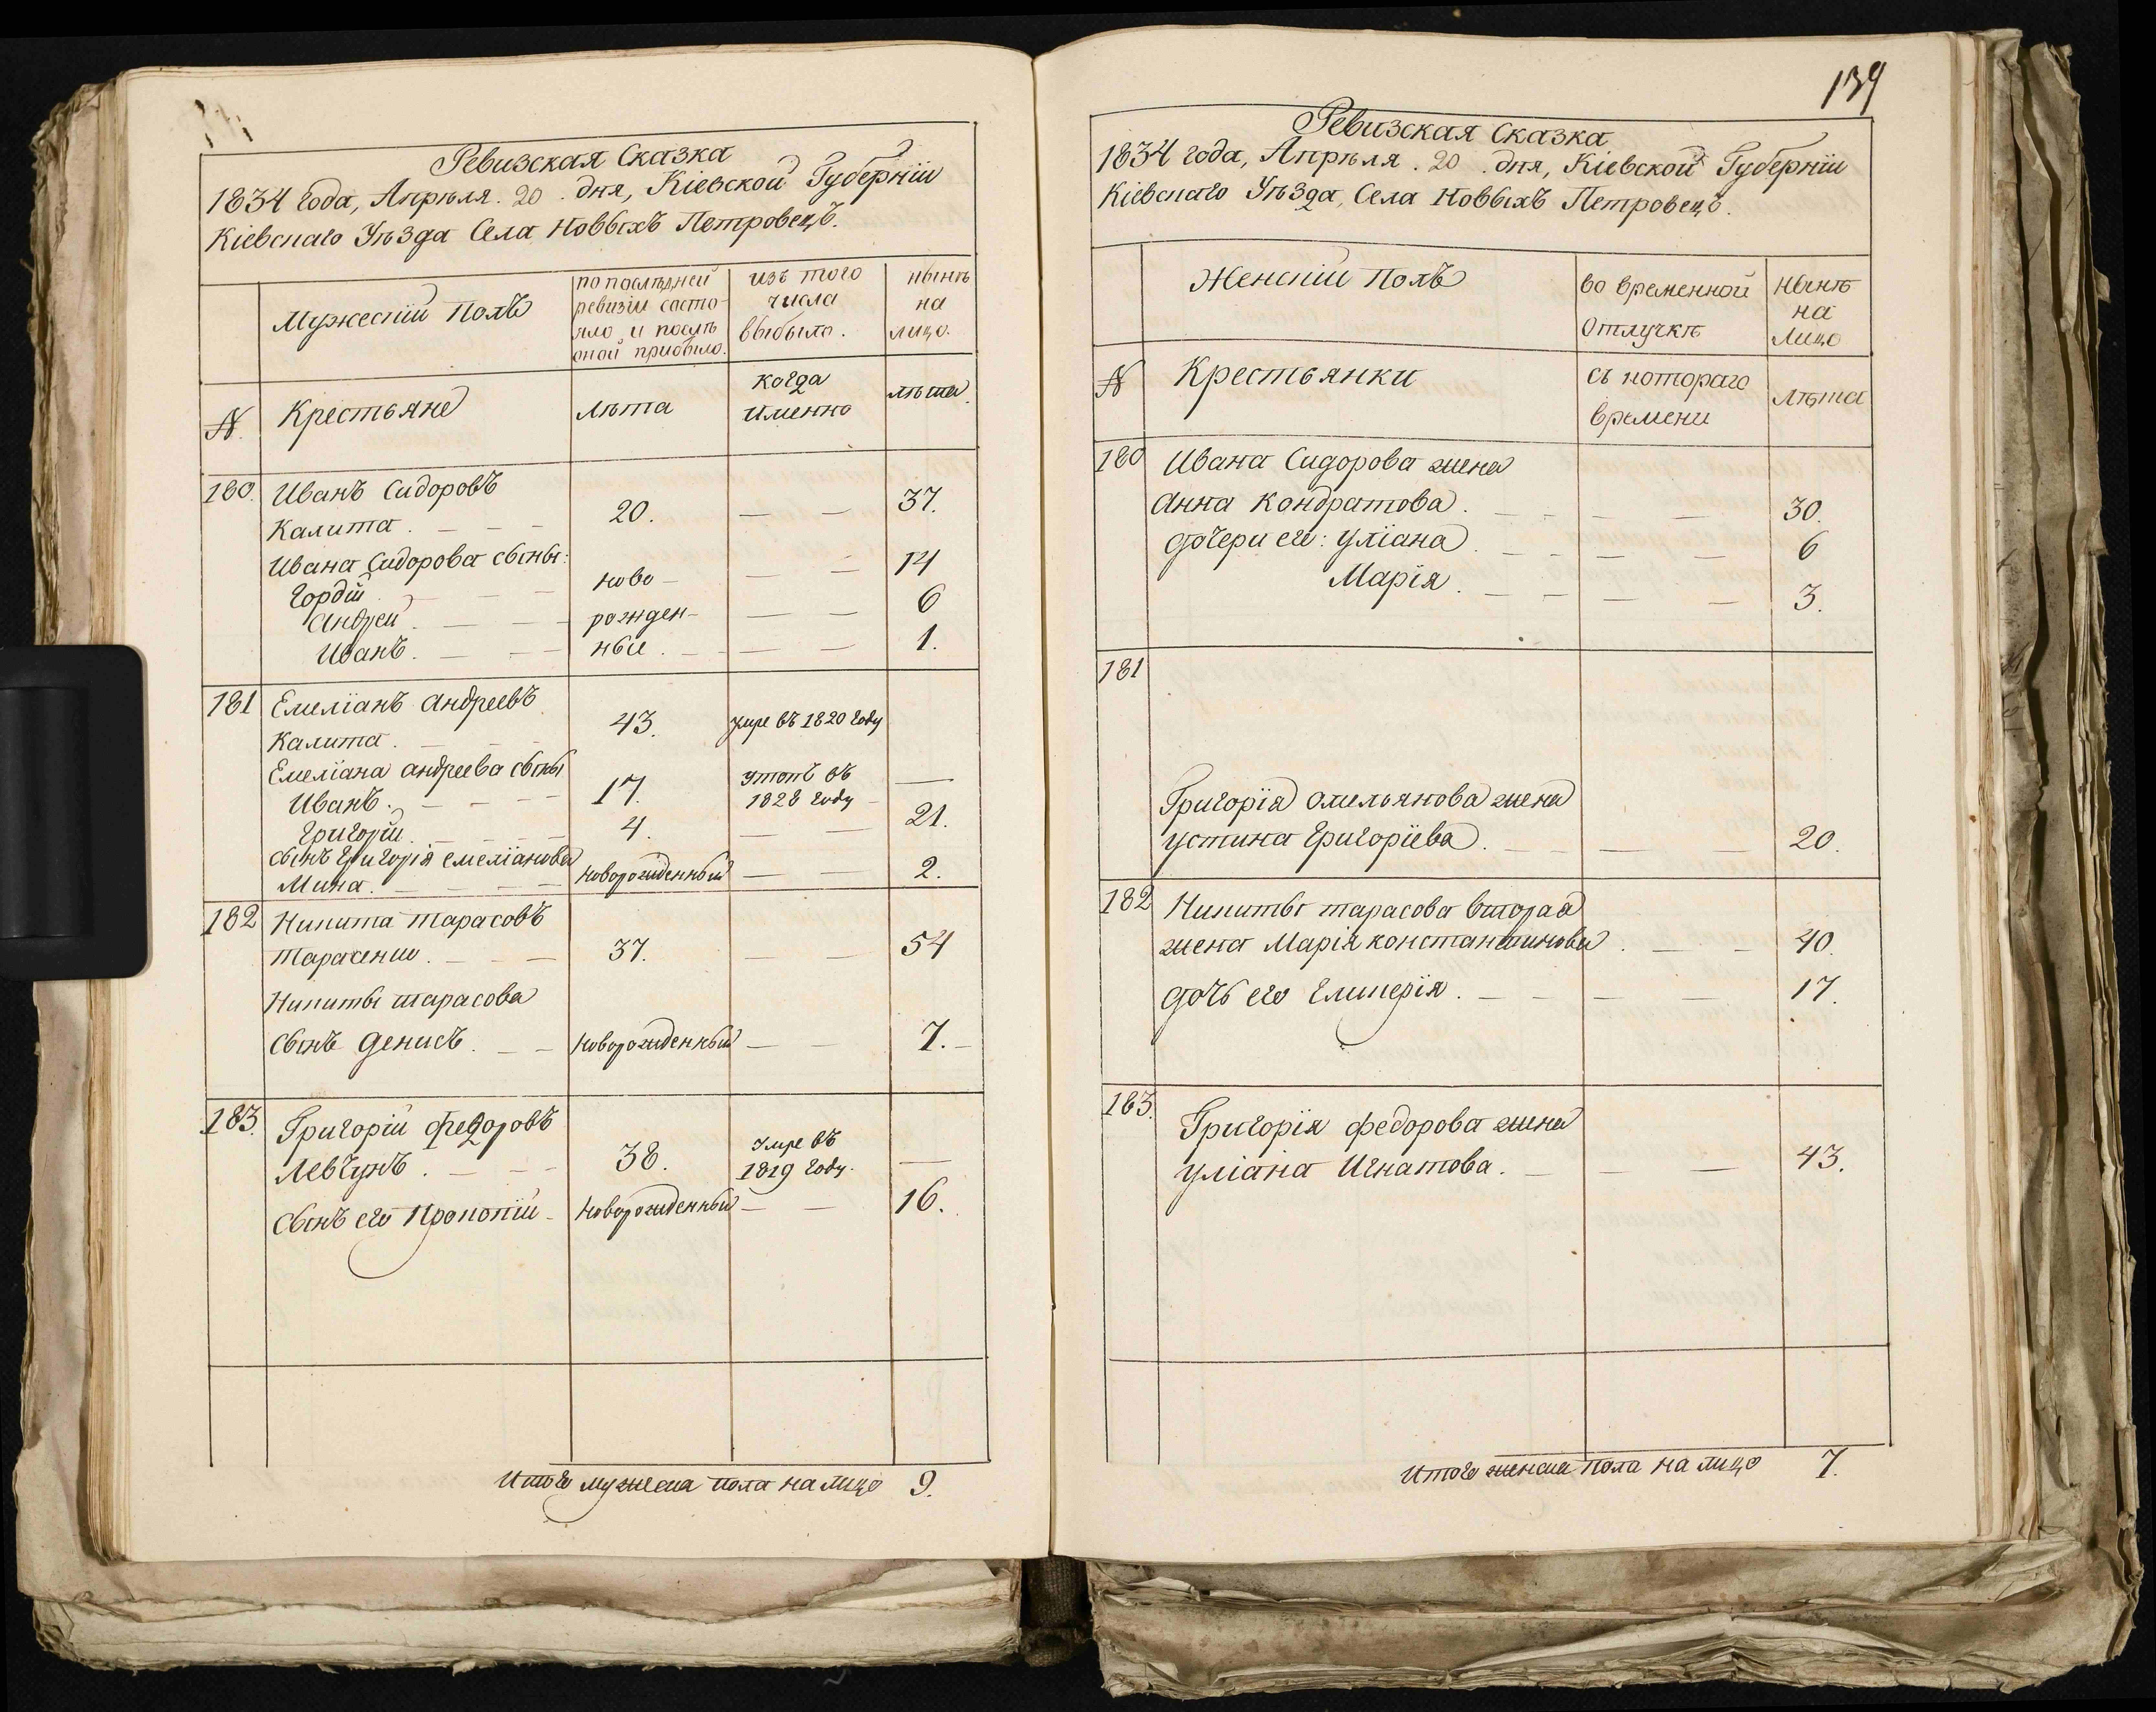 Ревизская Сказка
1834 года, Апрѣля. 20. дня, Кіевской Губерніи
Кіевскаго Уѣзда Села Новвыхъ Петровецъ.
Мужескій Полъ
по послѣдней
ревизіи состо-
яло и послѣ
оной прибыло.
изъ того
числа
выбыло.
нынѣ
на
лицо.
N. Крестьяне
лѣта
когда
именно
лѣта.
180. Иванъ Сидоровъ
Калита. 20. 37.
Ивана Сидорова сыны:
Гордій ново- 14
Андрей рожден- 6
Иванъ. ные. 1.
181 Емеліанъ Андреевъ
Калита. 43. умре въ 1820 году
Емеліана Андреева сыны
Иванъ. 17. утопъ въ
1828 году
Григорій. 4. 21.
сынъ Григорія Емеліанова
Мина. новорожденный 2.
182 Никита Тарасовъ
37. 54
Никиты Тарасова
сынъ Денисъ. новорожденный 7.
183. Григорій Федоровъ
Левчунъ. 38. умре въ
1819 году.
сынъ его Прокопій новорожденный 16.
Итого мужеска пола на лицо 9.
139
Ревизская Сказка
1834 года, Апрѣля. 20. дня, Кіевской Губерніи
Кіевскаго Уѣзда, Села Новвыхъ Петровецъ.
Женскій Полъ
во временной
отлучкѣ
Нынѣ
на
лицо
N Крестьянки
съ котораго
времени
лѣта
180 Ивана Сидорова жена
Анна Кондратова. 30.
дочери его: Уліана 6
Марія. 3.
181
Григорія Омельянова жена
Устина Григоріева. 20.
182 Никиты Тарасова вторая
жена Марія Константинова. 40.
дочь его Гликерія. 17.
183. Григорія Федорова жена
Уліана Игнатова. 43.
Итого женска пола на лицо 7.